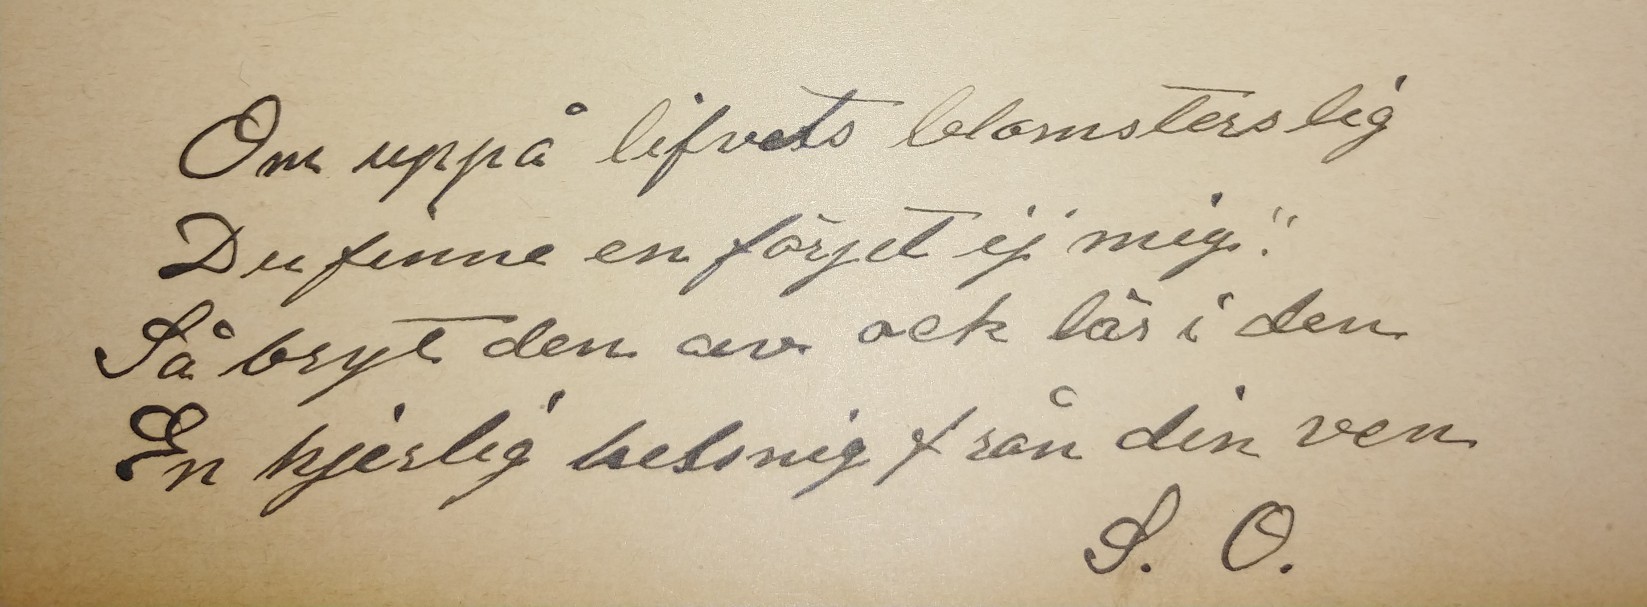 Om uppå lifvets blomsterslig
Du finne en förjet ej mig."
Så bryt den av ock lär i den
En hjerlig helsnig från din ven
S. O.